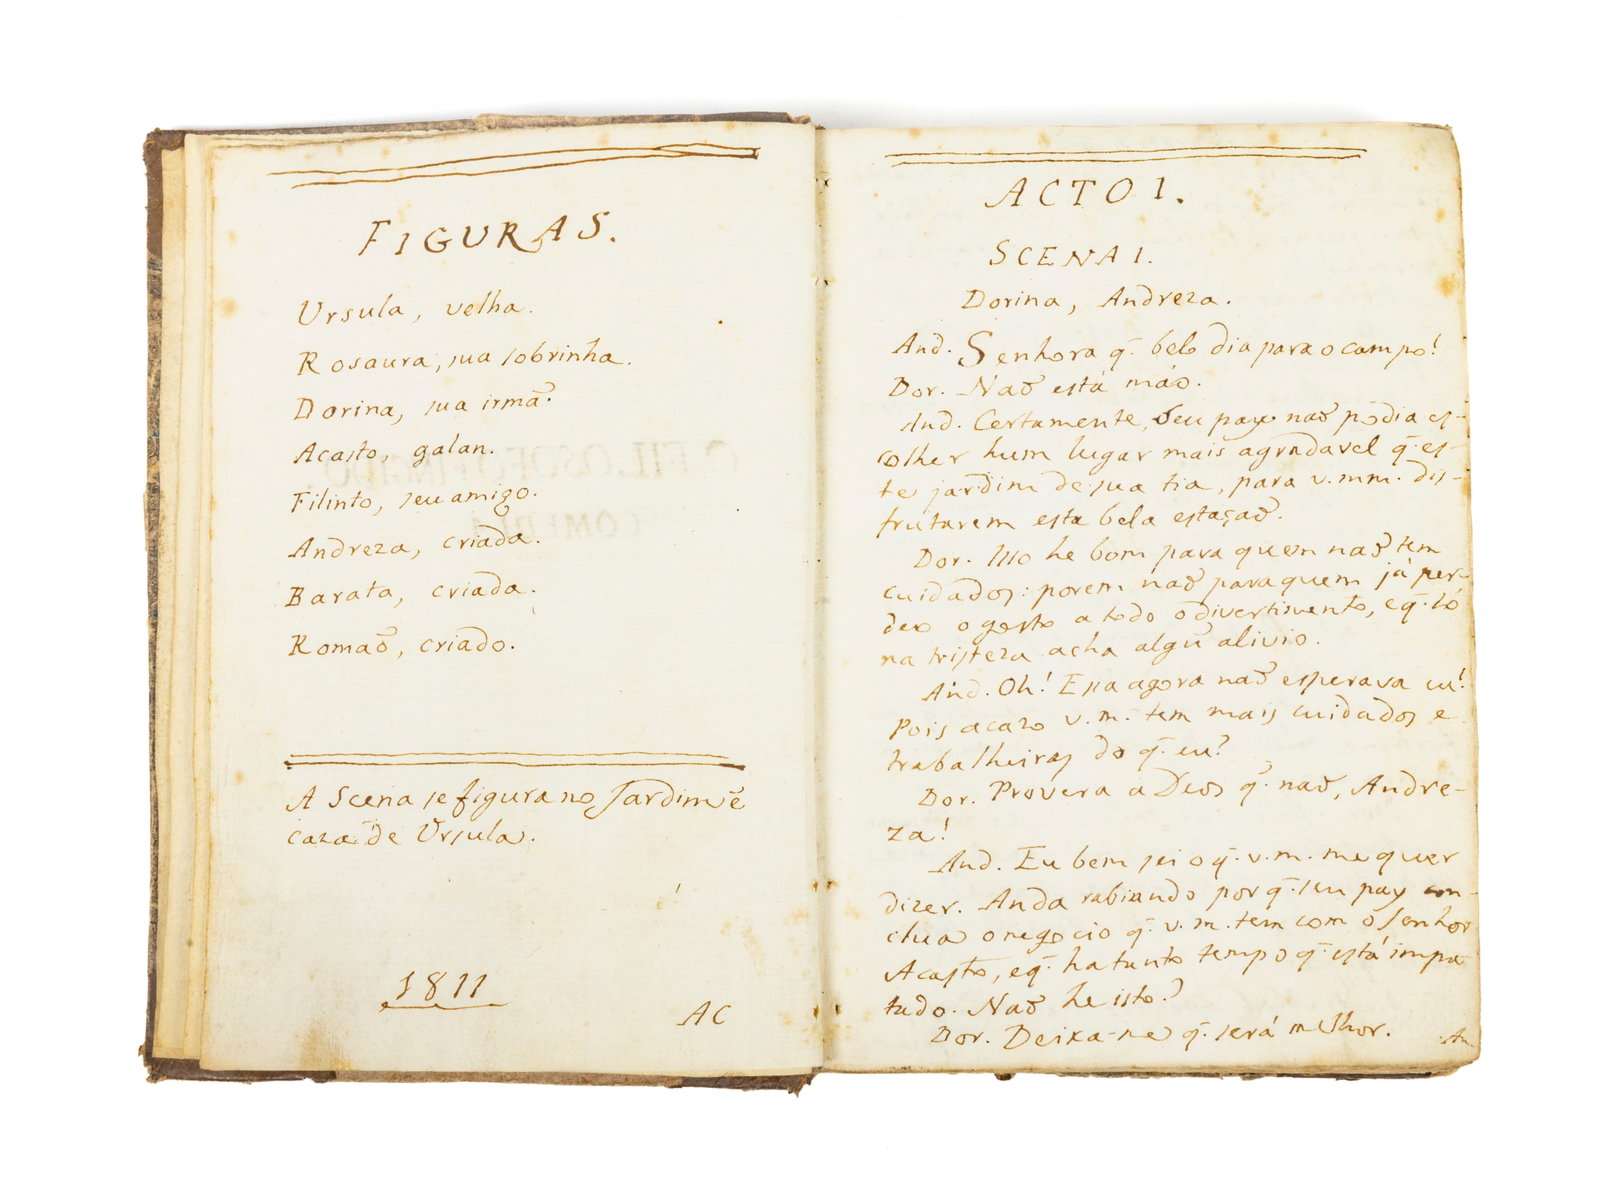 FIGURAS.
Ursula, velha.
Rosaura, sua sobrinha.
Dorina, sua irmã.
Acasto, galan.
Filinto, seu amigo.
Andreza, criada.
Barata, criada.
Romaõ, criado.
A Scena se figura no Jardim ẽ
caza de Ursula.
1811
AC
ACTO I.
SCENA I.
Dorina, Andreza.
And. Senhora q̃. belo dia para o campo!
Dor. Naõ está máo.
And. Certamente, seu pay naõ pódia es-
colher hum lugar mais agradavel q̃. es-
te jardim de sua tia, para v.mm. dis-
frutarem esta bela estaçaõ.
Dor. Isso he bom para quem naõ tem
cuidados: porem naõ para quem já per-
deo o gosto a todo o divertimento, e q̃. só
na tristeza acha algũ alivio.
And. Oh! Essa agora naõ esperava eu!
Pois acazo v.m. tem mais cuidados e
trabalheiras do q̃. eu?
Dor. Provera a Deos q̃. naõ, Andre-
za!
And. Eu bem sei o q̃. v.m. me quer
dizer. Anda rabiando por q̃. seu pay con-
clua o negocio q̃. v.m. tem com o Senhor
Acasto, e q̃. ha tanto tempo q̃. está impa-
tado. Naõ he isto?
Dor. Deixa-me q̃. será melhor.
An